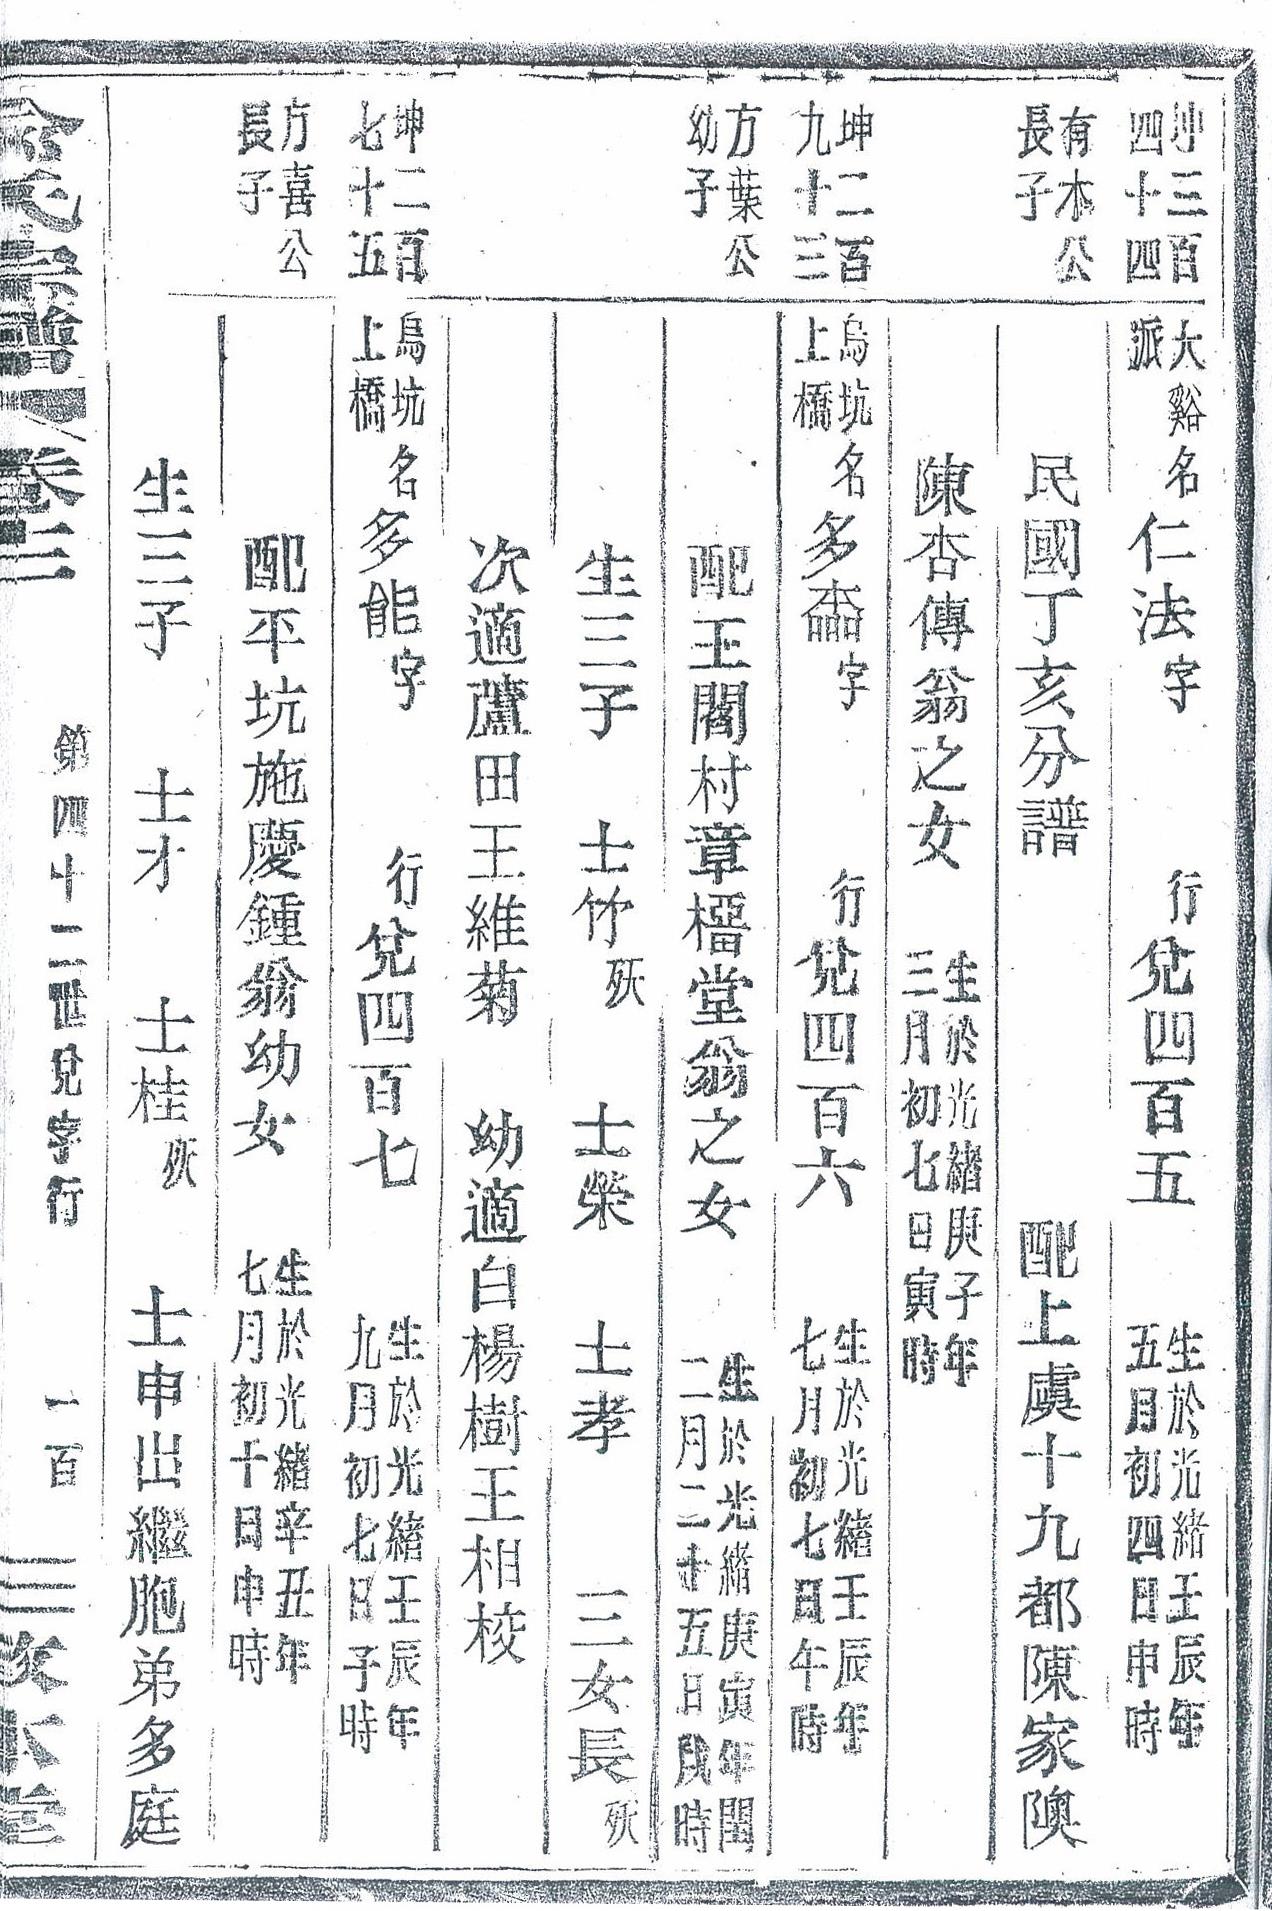 坤三百四十四 大谿派 名仁法字 行兌四百五 生於光緒壬辰年五月初四日申時
有木公長子 民國丁亥分譜 配上虞十九都陳家隩
陳杏傳翁之女 生於光緒庚子年三月初七日寅時
坤二百九十三 烏坑上橋 名多 字 行兌四百六 生於光緒壬辰年七月初七日午時
方葉公幼子 配王閣村章 堂翁之女 生於光緒庚寅年閏二月二十五日戌時
生三子 士竹殀 士榮 士孝 三女長殀
次適蘆田王維菊 幼適白楊樹王相校
坤二百七十五 烏坑上橋 名多能字 行兌四百七 生於光緒壬辰年九月初七日子時
方喜公長子 配平坑施慶鍾翁幼女 生於光緒辛丑年七月初十日申時
生三子 士才 士桂殀 士申出繼胞弟多庭
氏宗譜 卷三 第四十二世兌字行 一百 敦本堂